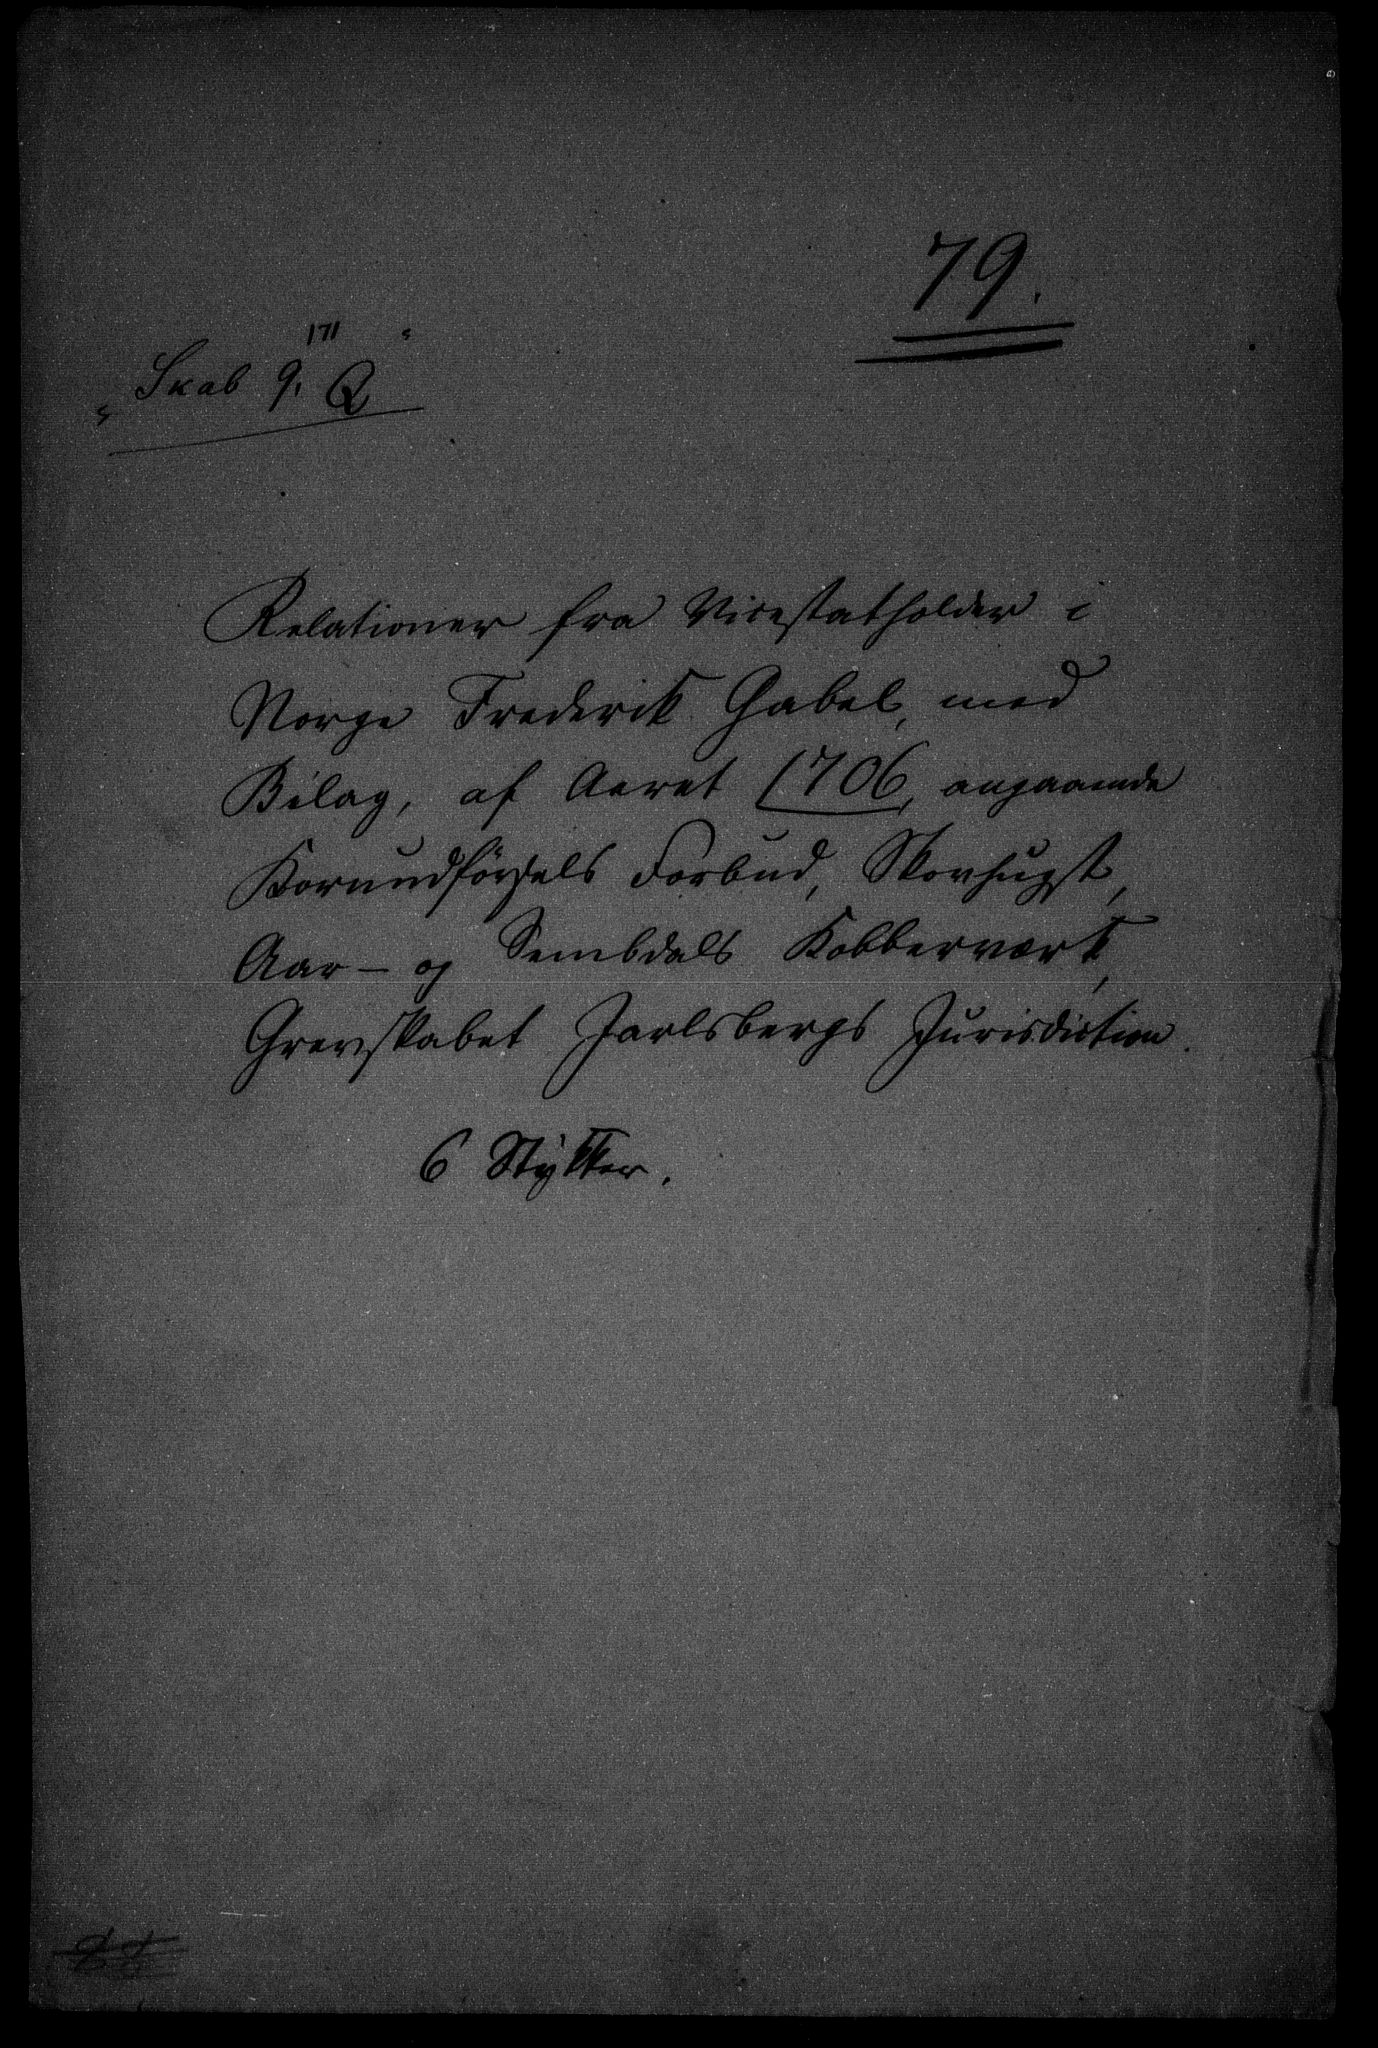 79.
171
„Skab 9. Q“
Relationer fra Vicestatholder i
Norge Frederik Gabel, med
Bilag, af Aaret 1706, angaaende
Kornindförsels Forbud, Skovhugst,
Aar- og Sembdals Kobberværk,
Grevskabet Jarlsbergs Jurisdiction.
6 Stykker.